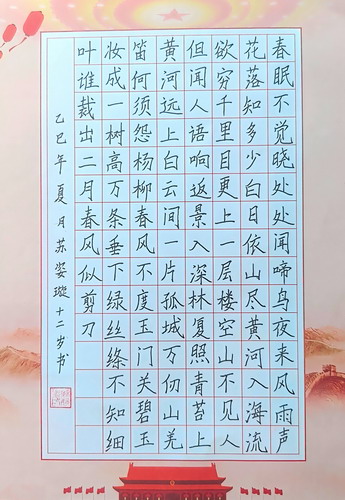 春眠不觉晓处处闻啼鸟夜来风雨声
花落知多少白日依山尽黄河入海流
欲穷千里目更上一层楼空山不见人
但闻人语响返景入深林复照青苔上
黄河远上白云间一片孤城万仞山羌
笛何须怨杨柳春风不度玉门关碧玉
妆成一树高万条垂下绿丝绦不知细
叶谁裁出二月春风似剪刀
乙巳年夏月苏姿璇十二岁书